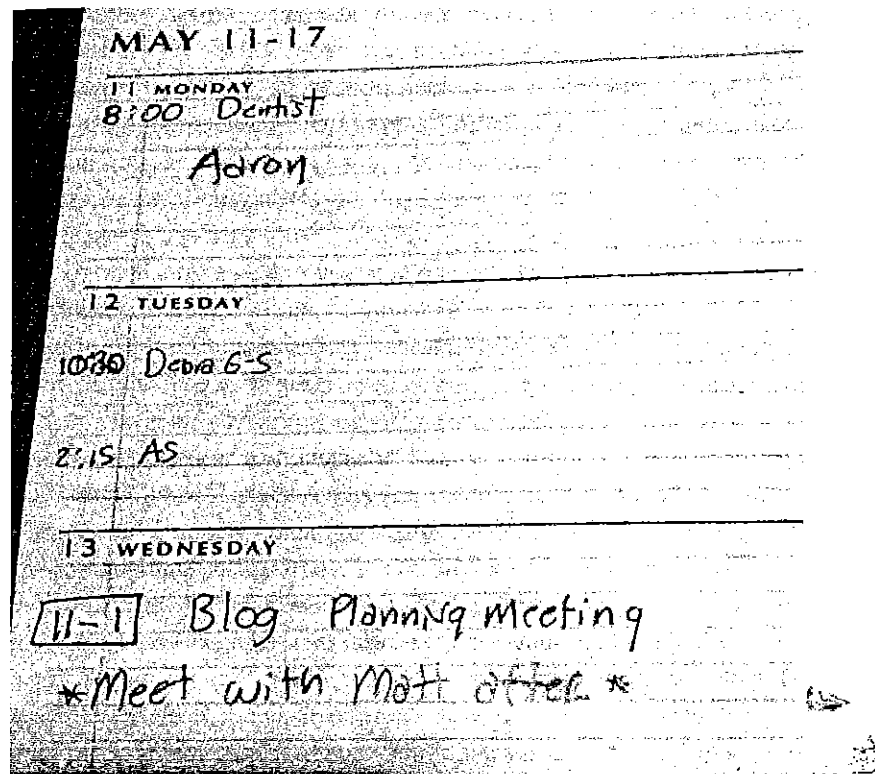 MAY 11-17
11 MONDAY
8:00 Dentist
Aaron
12 TUESDAY
10:30 Debra G-S
2:15 AS
13 WEDNESDAY
11-1 Blog Planning Meeting
*Meet with Matt after*